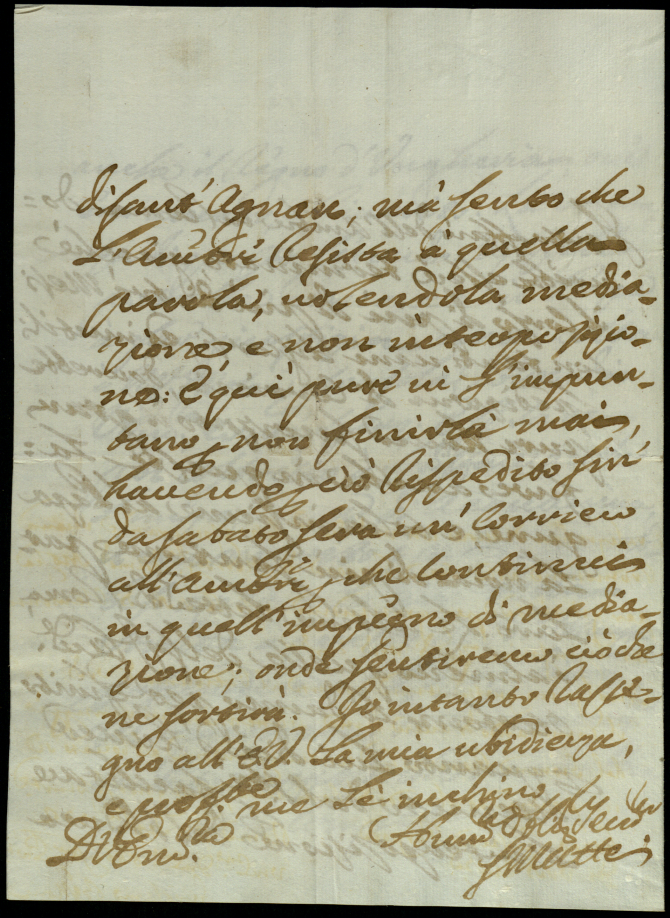 di Sant' Agnan; mà sento che
L'Ambr̃ Resista à quella
parola, uolendola media-
zione, e non interposizio-
ne: E qui pure ui s'impun-
tano p non finirla mai,
hauendo p ciò Rispedito sin'
da sabato sera un' Corriero
all'Ambr̃ p che Continui
in quell'impegno di media-
zione; onde sentiremo ciò che
ne sortirà. Io intanto Rasse-
gno all'E.V. La mia ubidienza,
e me Le inchino
Di V. Em.za
Hum.
S Mattei